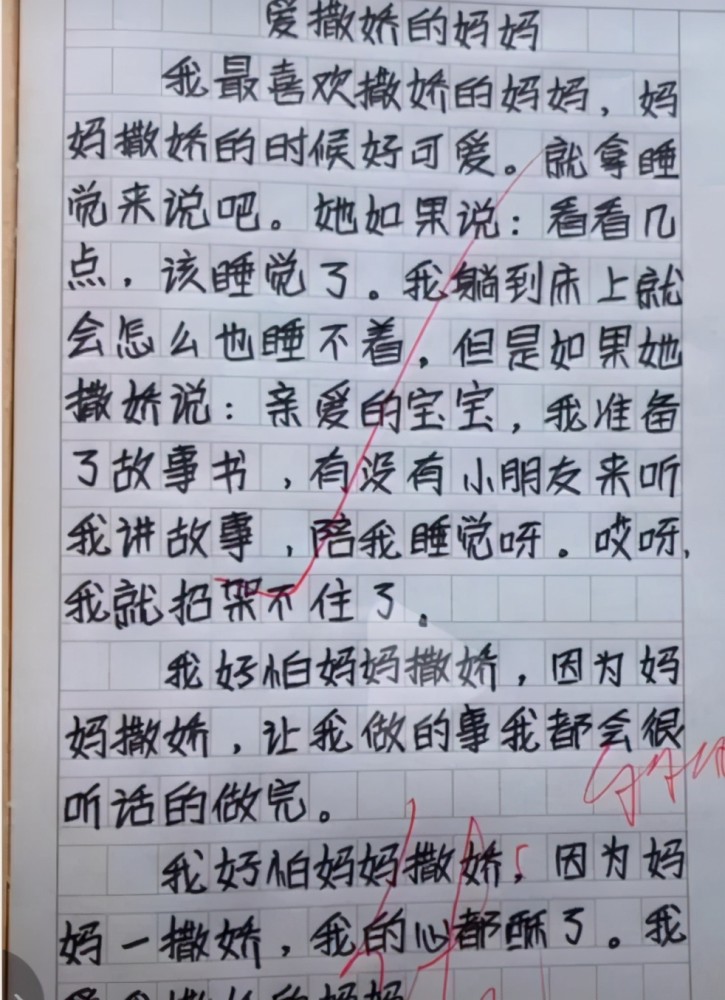 爱撒娇的妈妈
我最喜欢撒娇的妈妈，妈
妈撒娇的时候好可爱。就拿睡
觉来说吧。她如果说：看看几
点，该睡觉了。我躺到床上就
会怎么也睡不着，但是如果她
撒娇说：亲爱的宝宝，我准备
了故事书，有没有小朋友来听
我讲故事，陪我睡觉呀。哎呀，
我就招架不住了。
我好怕妈妈撒娇，因为妈
妈撒娇，让我做的事我都会很
听话的做完。
我好怕妈妈撒娇，因为妈
妈一撒娇，我的心都酥了。我